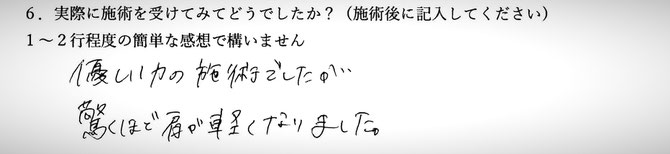 6．実際に施術を受けてみてどうでしたか？（施術後に記入してください）
1～2行程度の簡単な感想で構いません
優しい力の施術でしたが…
驚くほど肩が軽くなりました。